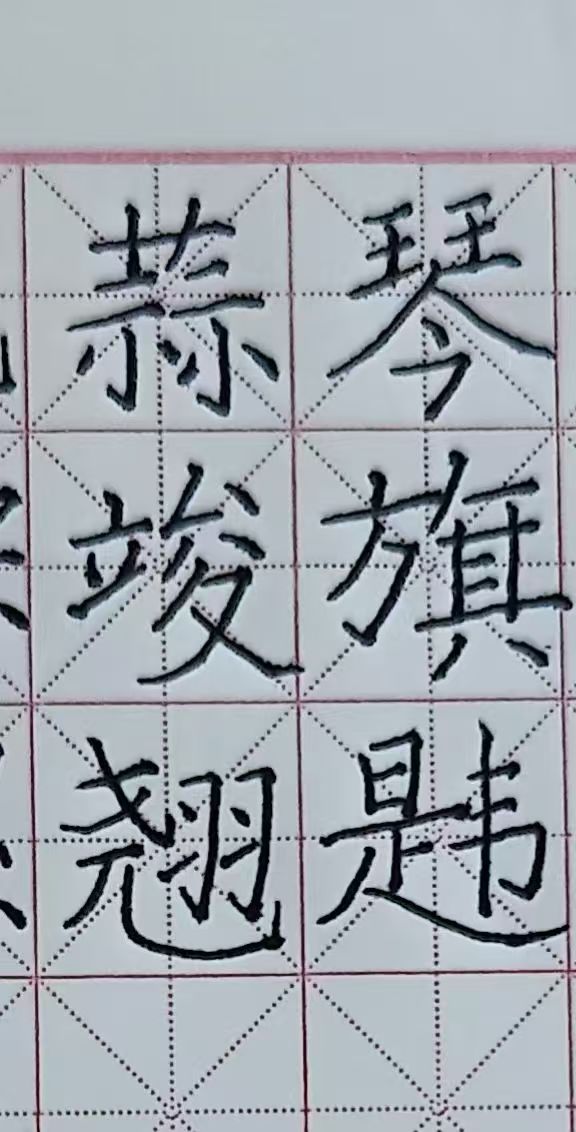 蒜琴
竣旗
翘韪